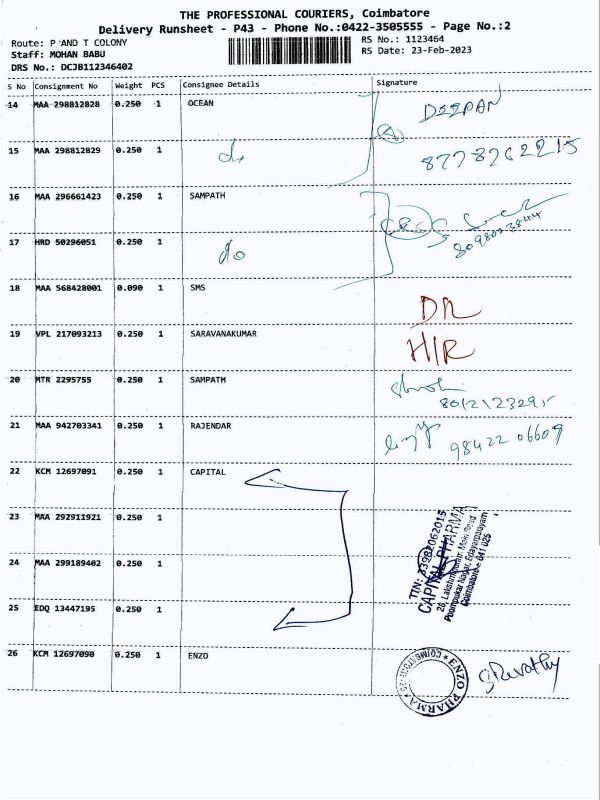 THE PROFESSIONAL COURIERS, Coimbatore
Delivery Runsheet - P43 - Phone No.:0422-3505555 - Page No.:2
Route: P AND T COLONY
RS No.: 1123464
Staff: MOHAN BABU
RS Date: 23-Feb-2023
DRS No.: DCJB112346402
S No Consignment No Weight PCS Consignee Details Signature
14 MAA 298812828 0.250 1 OCEAN DEEPAN
15 MAA 298812829 0.250 1 do 8778762215
16 MAA 296661423 0.250 1 SAMPATH
17 HRD 50296051 0.250 1 do
18 MAA 568428001 0.090 1 SMS DR
19 VPL 217093213 0.250 1 SARAVANAKUMAR H/R
20 MTR 2295755 0.250 1 SAMPATH
21 MAA 942703341 0.250 1 RAJENDAR 98422 06609
22 KCM 12697091 0.250 1 CAPITAL
23 MAA 292911921 0.250 1
24 MAA 299189402 0.250 1
25 EDQ 13447195 0.250 1
TIN: 33982062015
CAPITAL PHARMA
Poompukar Nagar, Edayarpalayam
Coimbatore - 641 025
26 KCM 12697090 0.250 1 ENZO
ENZO PHARMA
S Revathy